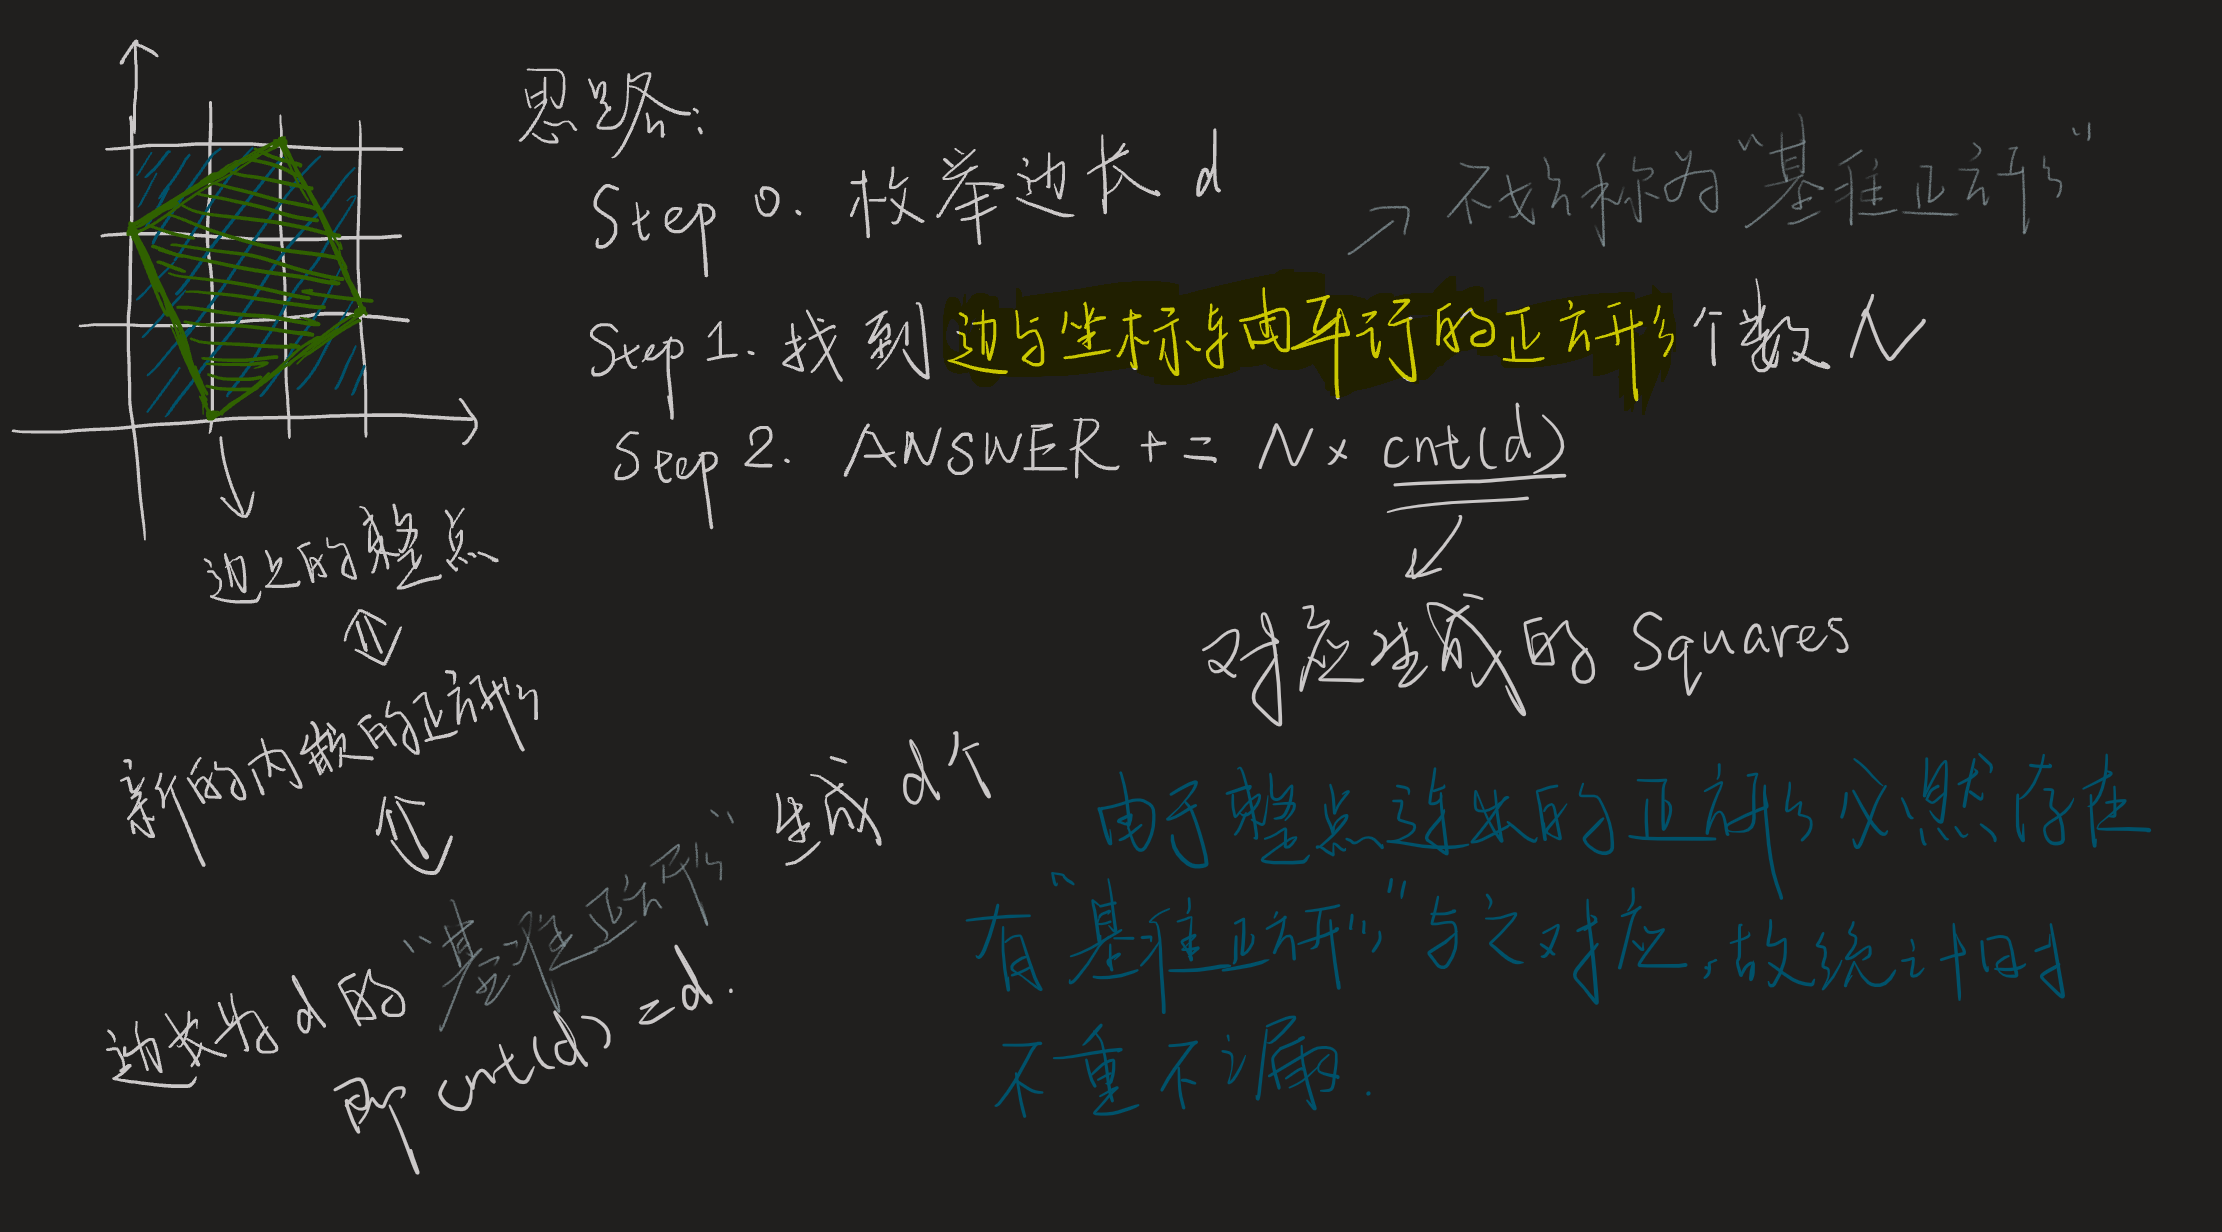 思路:
Step 0. 枚举边长 d
不妨称为"基准正方形"
Step 1. 找到边与坐标轴平行的正方形个数 N
Step 2. ANSWER += N× cnt(d)
对应生成的 Squares
边上的整点
新的内嵌的正方形
边长为 d 的"基准正方形"生成 d个
即 cnt(d)=d.
由于整点连出的正方形必然存在
有"基准正方形"与之对应,故统计时
不重不漏.